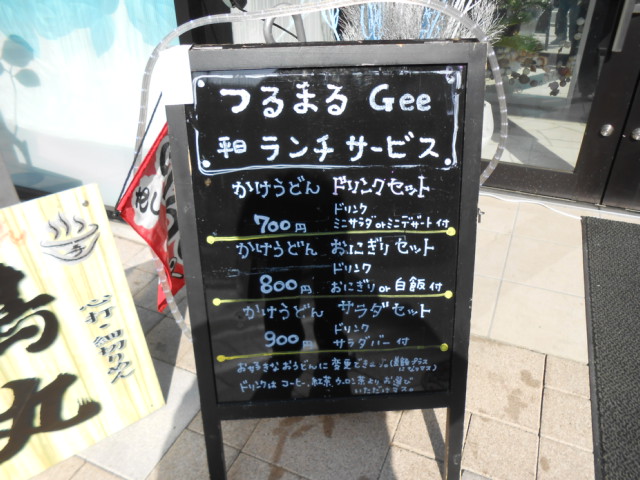 つるまる Gee
平日 ランチサービス
かけうどん ドリンクセット
ドリンク
700円 ミニサラダorミニデザート付
かけうどん おにぎりセット
ドリンク
800円 おにぎり or 白飯付
かけうどん サラダセット
ドリンク
900円 サラダバー付
お好きなおうどんに変更できます
ドリンクはコーヒー、紅茶、ウーロン茶よりお選び
いただけマス。
丸